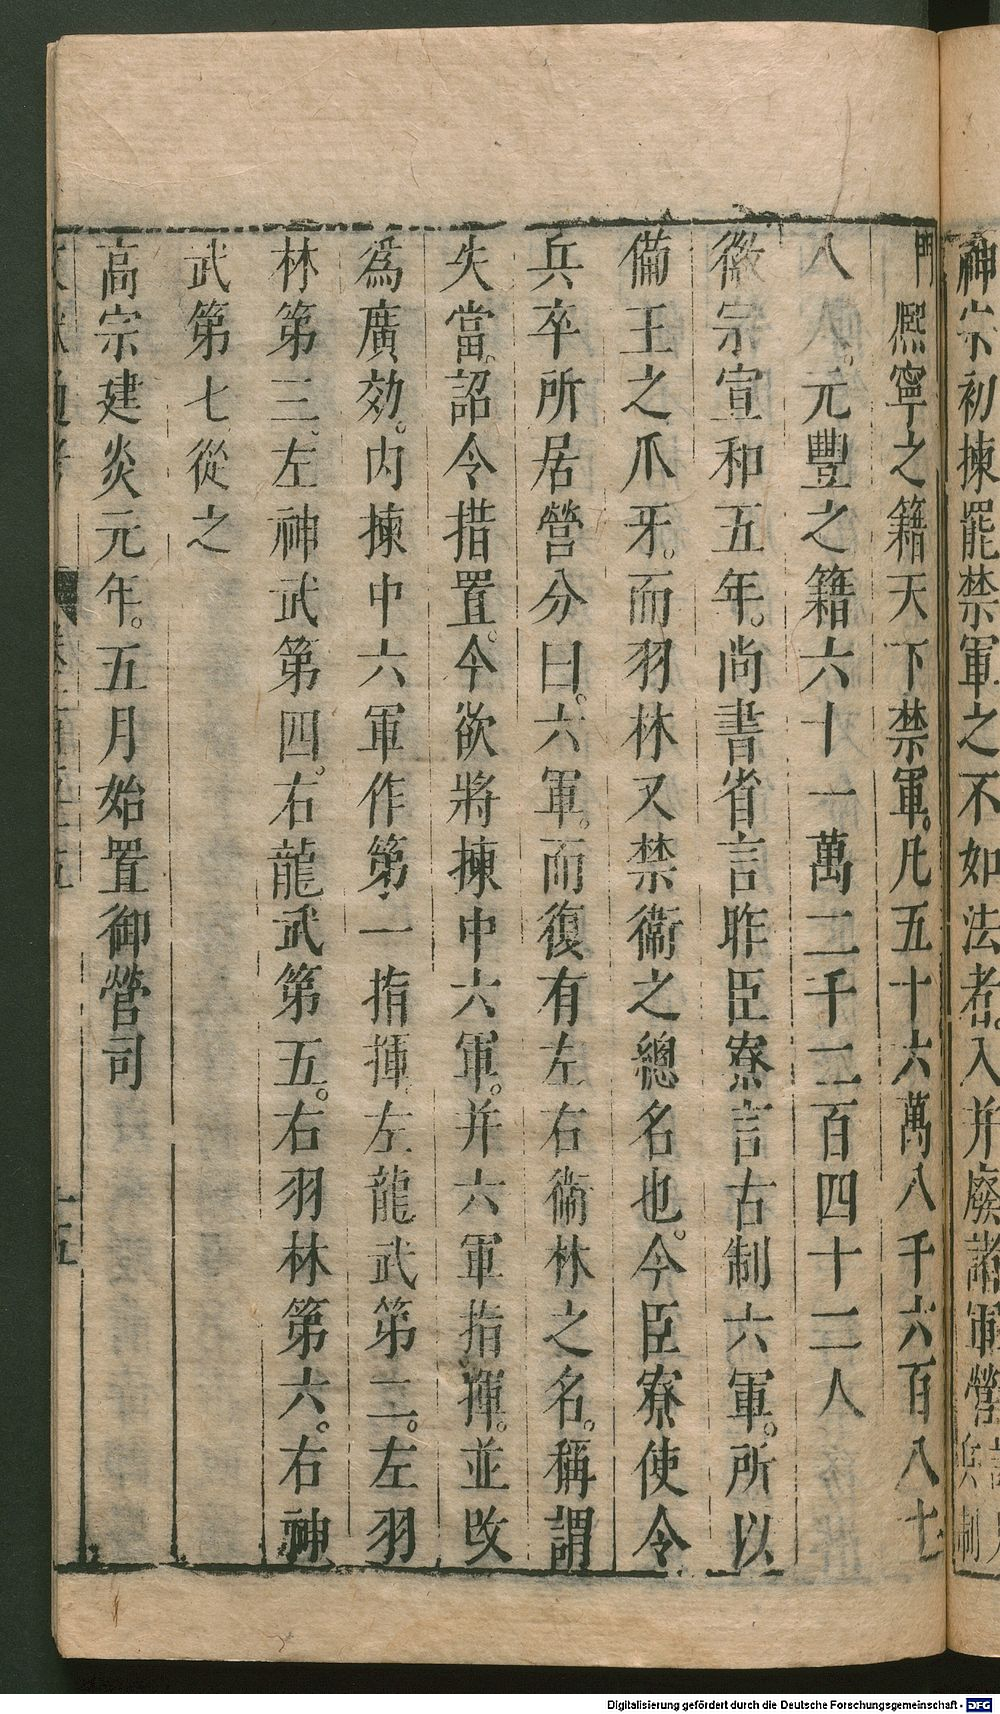 神宗初揀罷禁軍之不如法者。入并廢諸軍營
兵制
門
熈寧之籍天下禁軍。凡五十六萬八千六百八十
八人。元豐之籍六十一萬二千二百四十二人
徽宗宣和五年。尚書省言昨臣寮言古制六軍。所以
備王之爪牙。而羽林又禁衞之總名也。今臣寮使令
兵卒所居營分曰。六軍。而復有左右衞林之名。稱謂
失當。詔令措置。今欲將揀中六軍。并六軍指揮。並改
爲廣効。内揀中六軍作第一指揮左龍武第二。左羽
林第三。左神武第四。右龍武第五。右羽林第六。右神
武第七從之
高宗建炎元年。五月始置御營司
文獻通考
卷一百五十五
十五
Digitalisierung gefördert durch die Deutsche Forschungsgemeinschaft - DFG